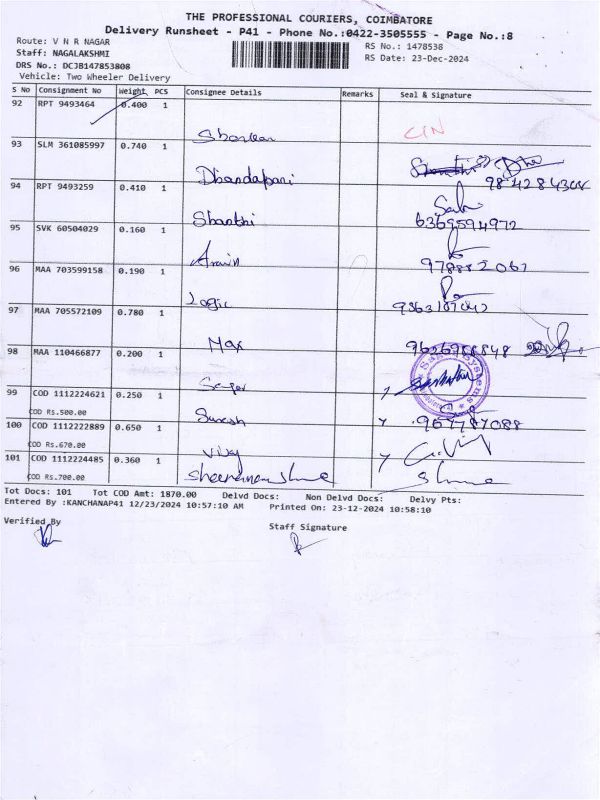 THE PROFESSIONAL COURIERS, COIMBATORE
Delivery Runsheet - P41 - Phone No.:0422-3505555 - Page No.:8
Route: V N R NAGAR
RS No.: 1478538
Staff: NAGALAKSHMI
RS Date: 23-Dec-2024
DRS No.: DCJB147853808
Vehicle: Two Wheeler Delivery
S No Consignment No Weight PCS Consignee Details Remarks Seal & Signature
92 RPT 9493464 0.400 1
93 SLM 361085997 0.740 1
Dhandapani
94 RPT 9493259 0.410 1
Shanthi
95 SVK 60504029 0.160 1
6369594972
96 MAA 703599158 0.190 1
97 MAA 705572109 0.780 1
Logic
98 MAA 110466877 0.200 1
Max
99 COD 1112224621 0.250 1
COD Rs.500.00
Suresh
100 COD 1112222889 0.650 1
COD Rs.670.00
Vijay
101 COD 1112224485 0.360 1
COD Rs.700.00
Tot Docs: 101 Tot COD Amt: 1870.00 Delvd Docs: Non Delvd Docs: Delvy Pts:
Entered By :KANCHANAP41 12/23/2024 10:57:10 AM Printed On: 23-12-2024 10:58:10
Verified By
Staff Signature